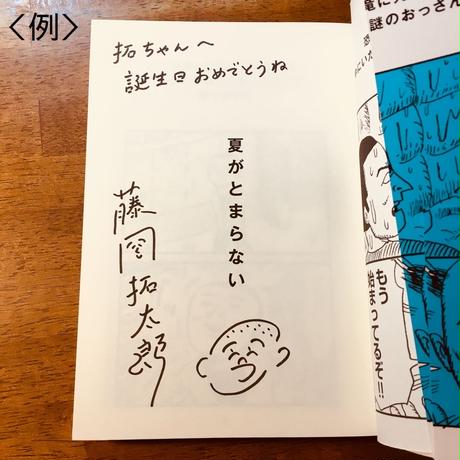 <例>
拓ちゃんへ
誕生日おめでとうね
夏がとまらない
藤岡拓太郎
謎のおっさん
もう
始まってるぞ!!